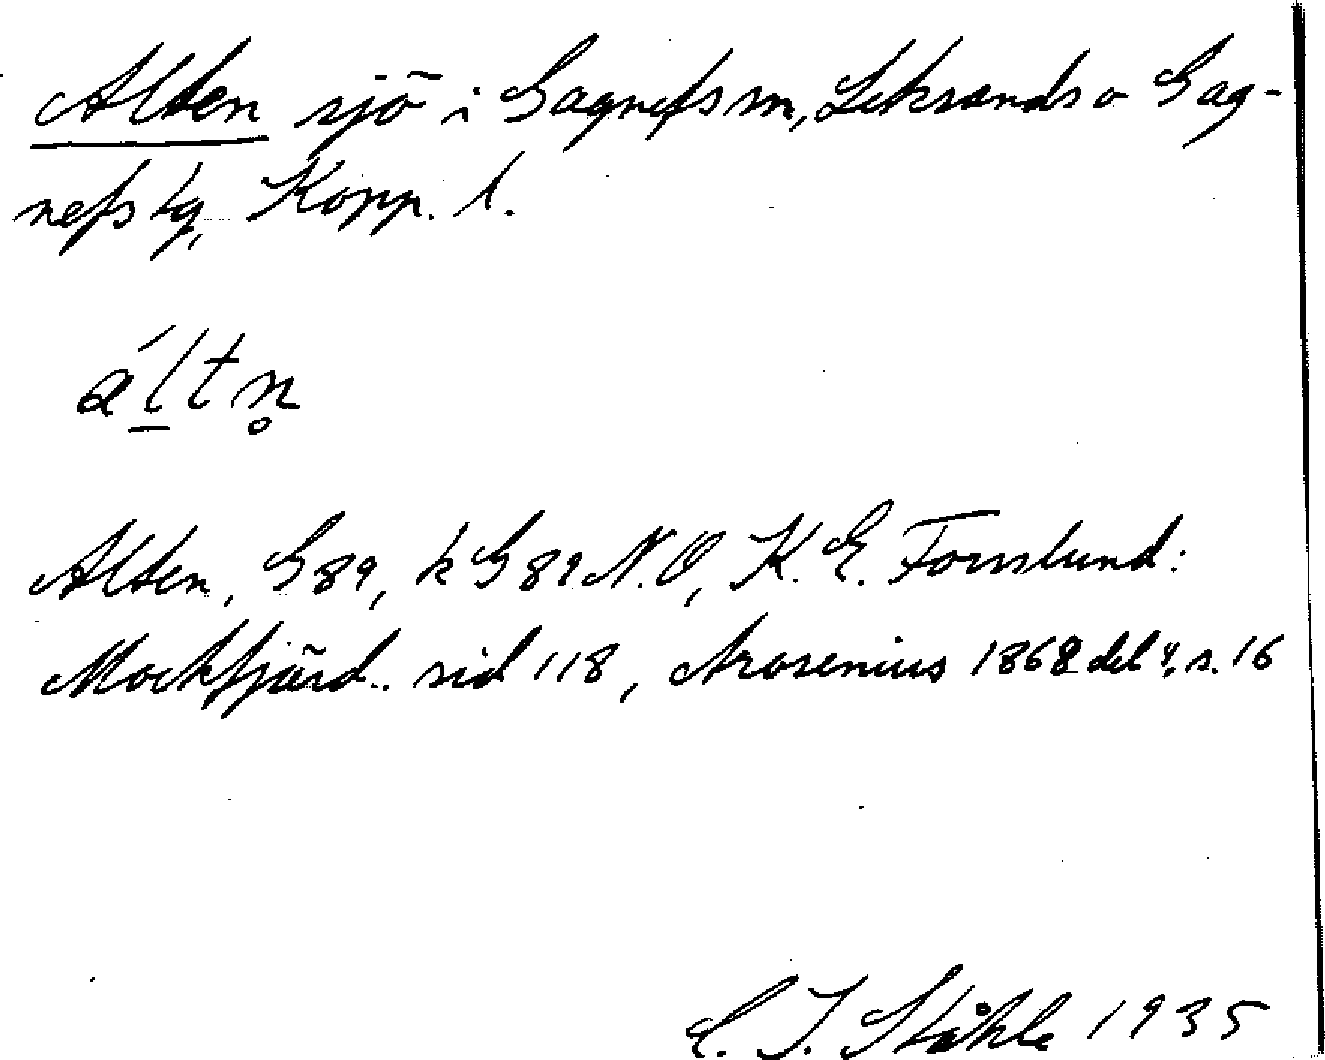 Alten sjö i Gagnefs sn, Leksands o Gag-
nefs tg, Kopp. l.
áltn̥
Alten, G89, k G89 N.O, K. E. Forslund:
Mockfjärd.. sid 118, Arosenius 1868 del 4, s. 16
C. I. Ståhle 1935